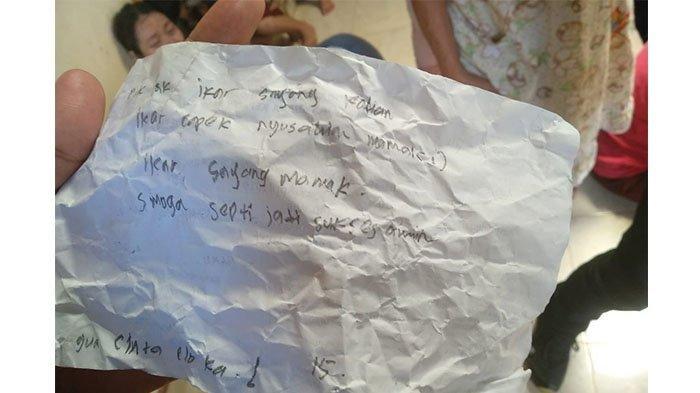 ikar sayang kalian
ikar capek nyusahin mamak :)
ikar sayang mamak.
smoga septi jadi sukses amin
gua cinta
15.